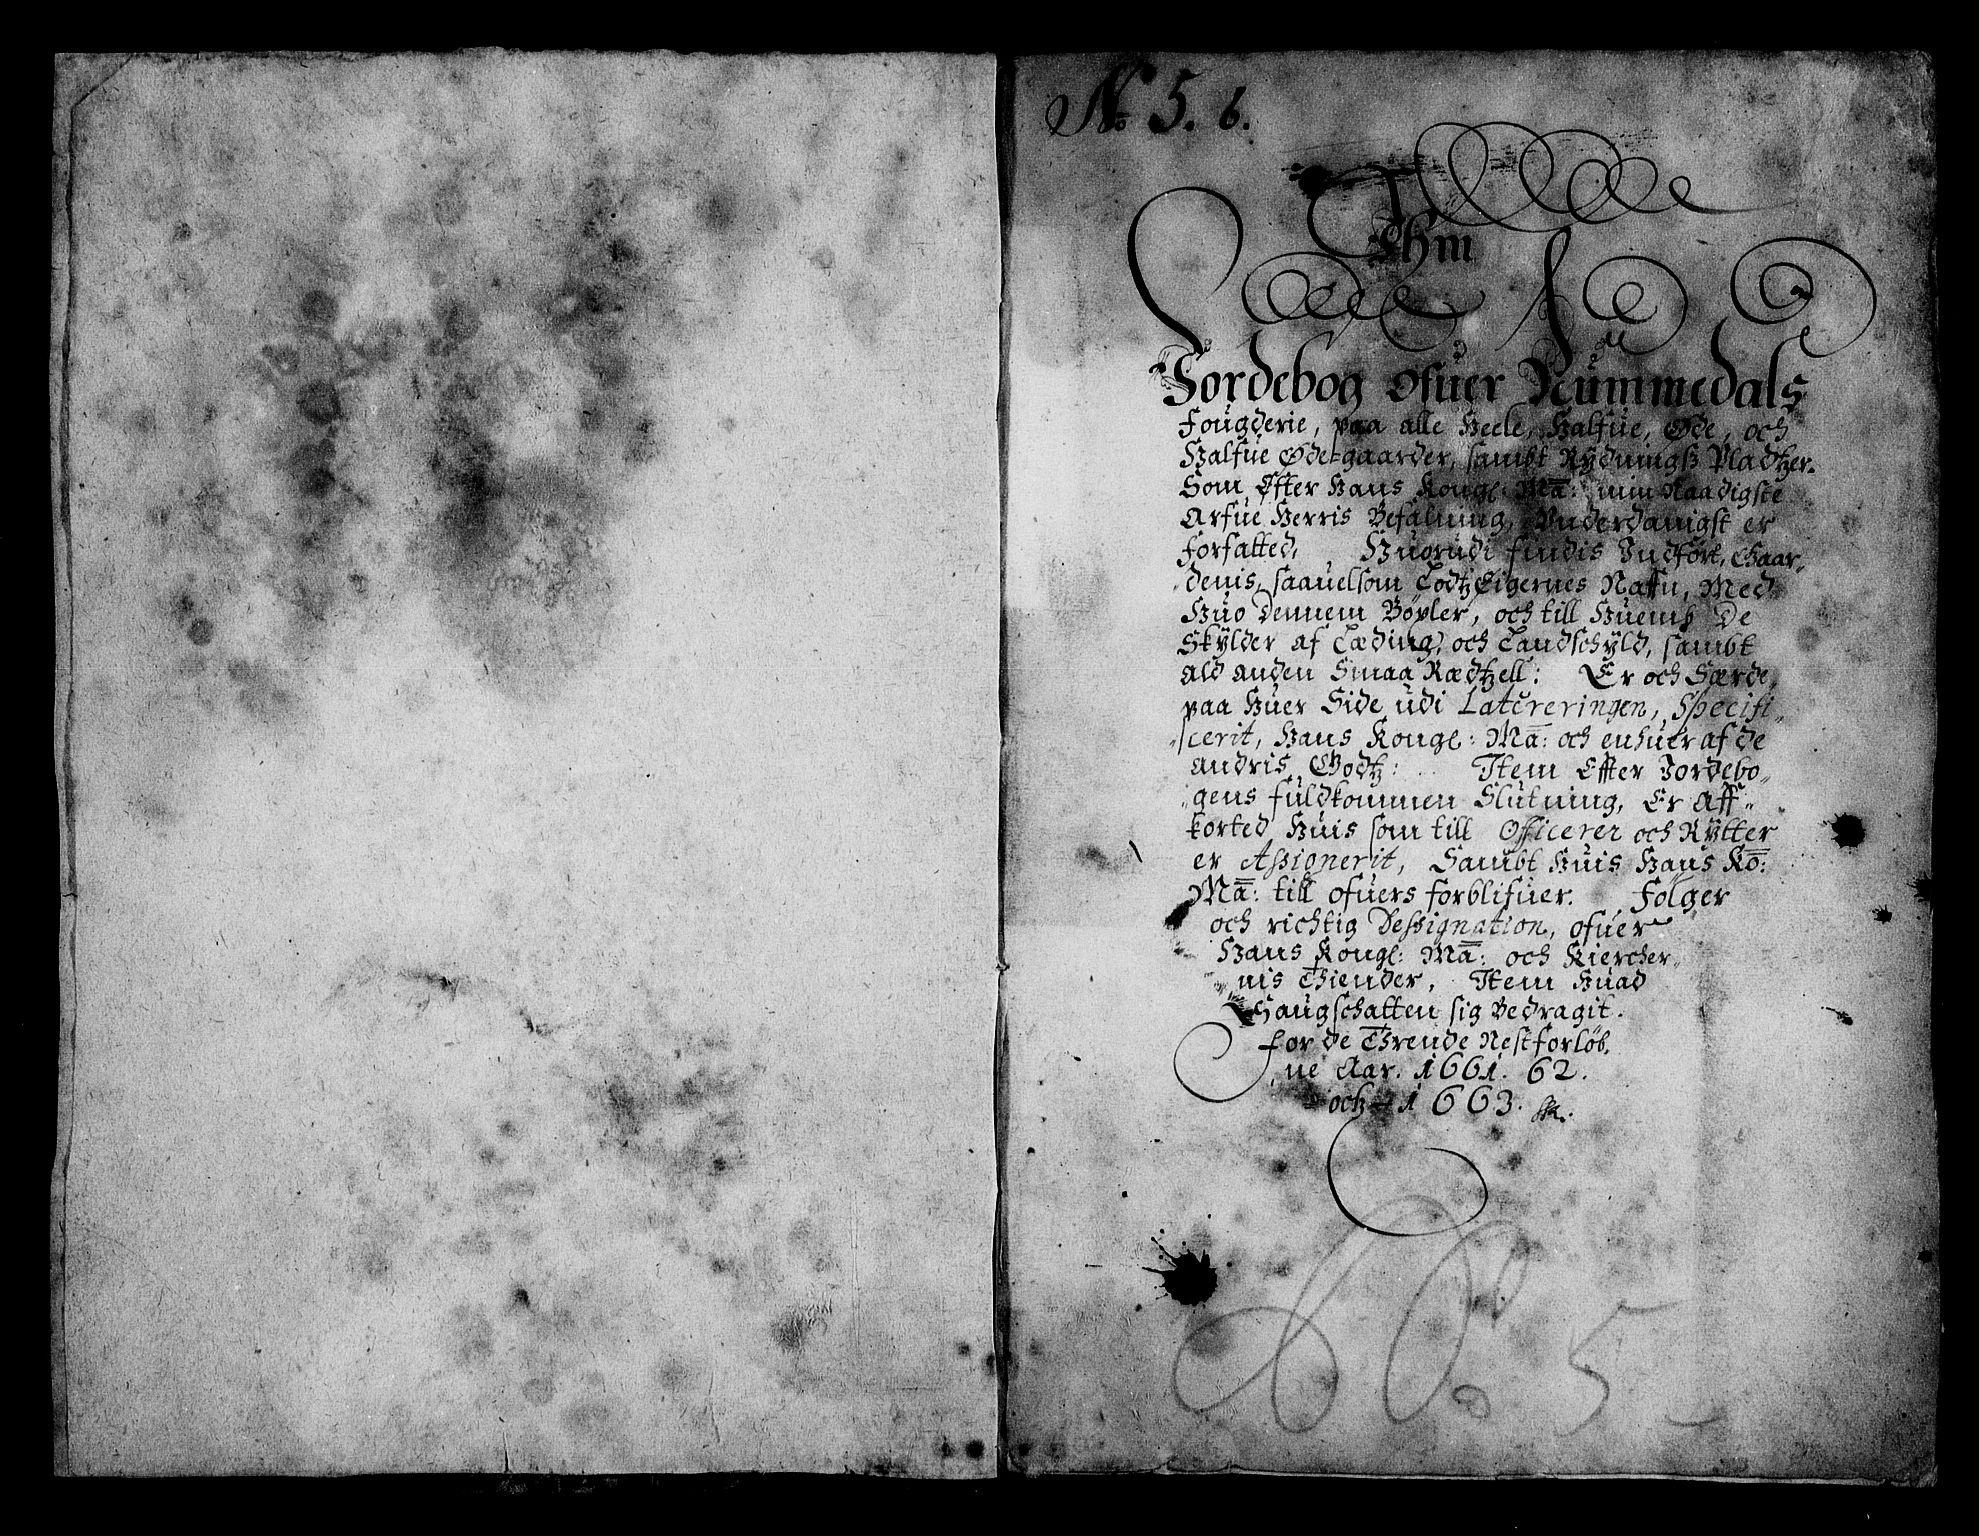 No 5. 6.
Thm
Jordebog ofuer Nummedals
Fougderie, paa alle Heele, Halfue, Øde, och
Halfue Øde-gaarder, sambt Rÿdningß Pladtzer.
Som Efter Hans Kongl: Ma: min Naadigste
Arfue Herris Befalning, Vnderdanigst er
forfatted, Huorudi findis Indført, Gaar„
„denis, saauelsom LodtzEigernes Naffn, Med
Huo Dennem Böxler, och till Huemb De
Skÿlder af Læding, och Landschÿld, sambt
ald anden Smaa Rædtzell: Er och Særde„
paa Huer Side udi Latereringen, Specifi„
„scerit, Hans Kongl: Ma: och enhuer af de
andris Godtz: Item Effter Jordebo„
„gens fuldkommen Slutning, Er Aff„
korted Huis som till Officerer och Rÿtter
er Assignerit, Sambt Huis Hans Ko:
Ma: till ofuers forblifuer. Følger
och richtig Dessignation, ofuer
Hans Kongl: Ma: och Kiercher„
„nis Thiender, Item Huad
Haugschatten sig Bedragit.
for de Thrende Nestforløb,
„ne Aar. 1661. 62.
och 1663.
No 5